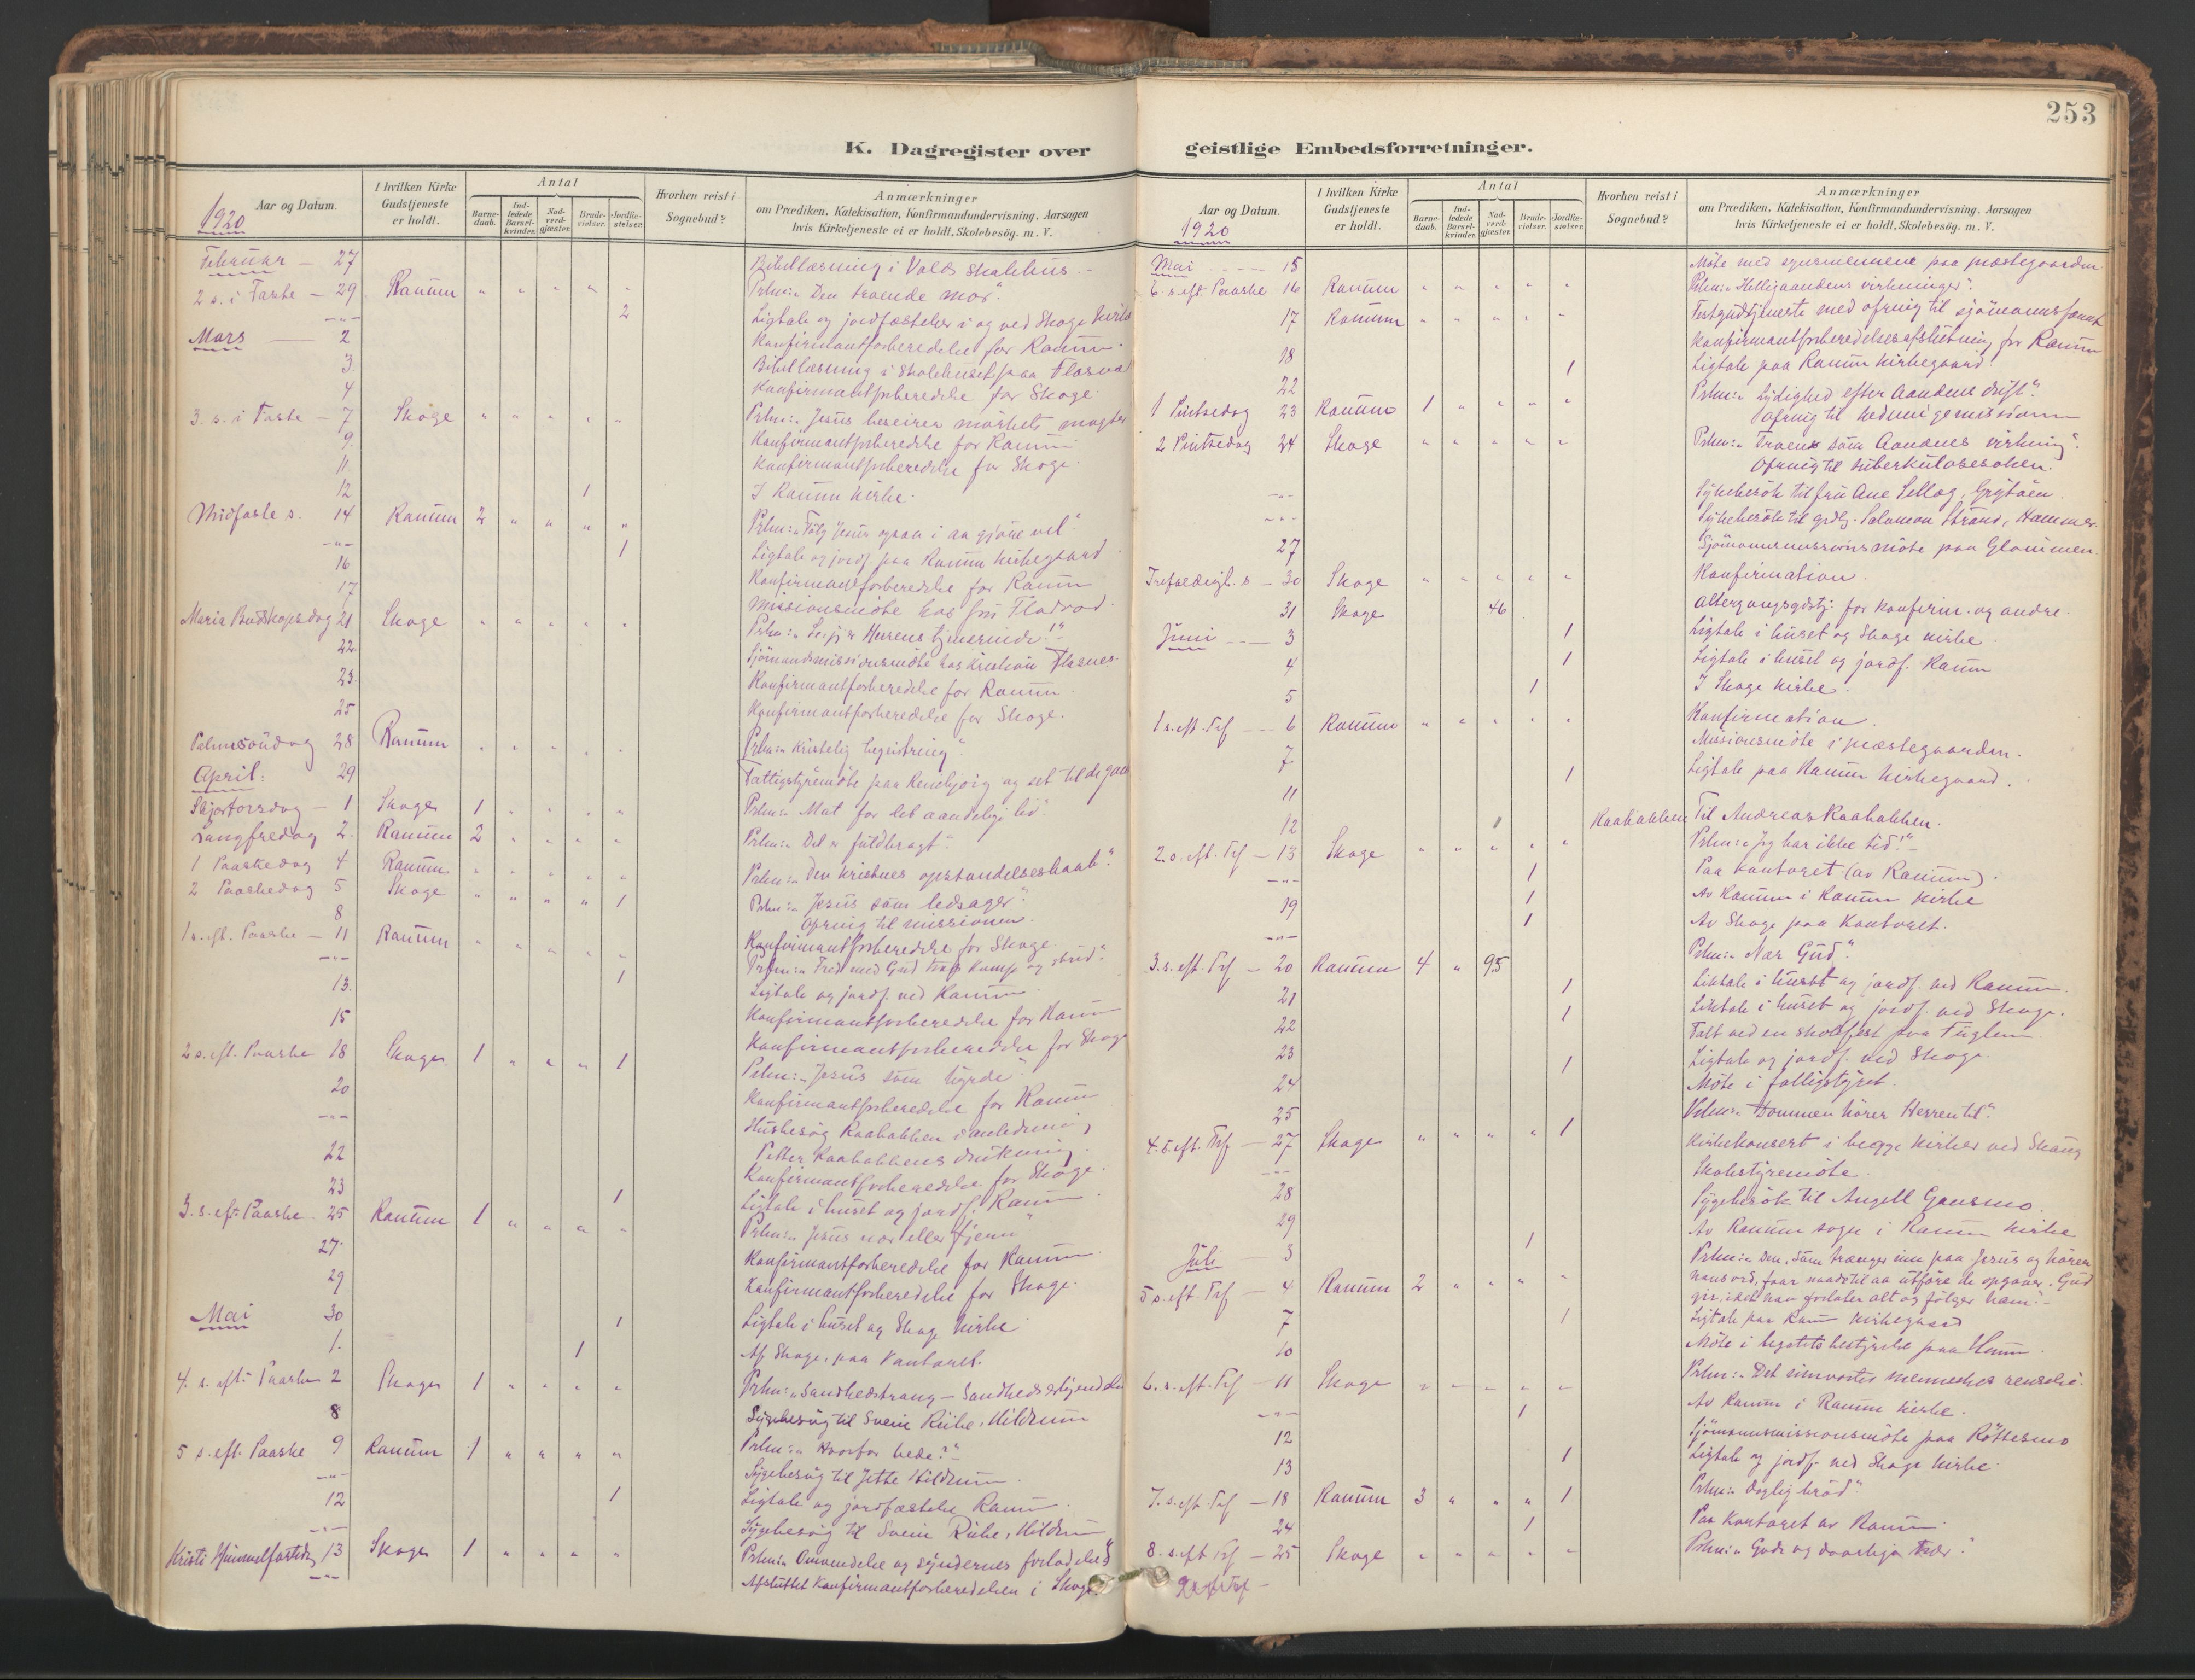 253
K. Dagregister over geistlige Embedsforretninger.
Aar og Datum. 1920
I hvilken Kirke Gudstjeneste er holdt.
Antal
Barnedaab. Indledede Barselkvinder. Nadverdgjæster. Brudevielser. Jordfæstelser.
Hvorhen reist i Sognebud?
Anmærkninger
om Prædiken, Katekisation, Konfirmandundervisning, Aarsagen
hvis Kirketjeneste ei er holdt, Skolebesög. m. V.
Februar — 27 Bibellæsning i Valds skolehus.
2 s. i Faste — 29 Ranum " " " " " Prkn: "Den troende mor".
—"— 2 Ligtale og jordfæstelse i og ved Skage kirke
Mars — 2 Konfirmantforberedelse for Ranum.
3. Bibellæsning i skolehuset paa Flasnes
4 Konfirmantforberedelse for Skage.
3. s. i Faste — 7 Skage " " " " " Prkn: "Jesus beseirer mørkets magter
9. Konfirmantforberedelse for Ranum
11 Konfirmantforberedelse for Skage.
12 1 I Ranum kirke.
Midfaste s. 14 Ranum 2 " " " " Prkn: "Følg Jesus ogsaa i aa gjøre vel".
—"— 1 Ligtale og jordf. paa Ranum kirkegaard.
16 Konfirmantforberedelse for Ranum
17 Missionsmöte hos fru Flodvad.
Maria Budskapsdag 21 Skage " " " " " Prkn: "Se, jeg er Herrens tjenerinde!"
22 Sjömandsmissionsmöte hos Kristian Flasnes.
23. Konfirmantforberedelse for Ranum.
25 Konfirmantforberedelse for Skage.
Palmesöndag 28 Ranum " " " " " Prkn: "Kristelig begeistring".
April: 29 Fattigstyremöte paa Renebjörg
Skjærtorsdag — 1 Skage 1 " " " " Prkn: "Mat for det aandelige liv".
Langfredag 2. Ranum 2 " " " " Prkn: "Det er fuldbragt".
1 Paaskedag 4 Ranum " " " " " Prkn: "Den kristnes opstandelseshaab".
2 Paaskedag 5 Skage " " " " 1 Prkn: "Jesus som ledsager".
Ofring til missionen.
8 Konfirmantforberedelse for Skage.
1 s. eft. Paaske — 11 Ranum " " " " " Prkn: "Fred med Gud trods kamp og strid".
—"— 1 Ligtale og jordf. ved Ranum
13. Konfirmantforberedelse for Ranum
15 Konfirmantforberedelse for Skage
2 s. eft. Paaske 18 Skage 1 " " " 1 Prkn: "Jesus som hyrde".
20 Konfirmantforberedelse for Ranum
—"— Husbesög Raabakken i anledning
Petter Raabakkens drukning.
22 Konfirmantforberedelse for Skage.
23 1 Ligtale i huset og jordf. Ranum.
3. s. eft. Paaske 25 Ranum 1 " " " " Prkn: "Jesus nær eller fjern"
27. Konfirmantforberedelse for Ranum.
29 Konfirmantforberedelse for Skage.
Mai 30 1 Ligtale i huset og Skage kirke
1. 1 Af Skage, paa kontoret.
4. s. eft. Paaske 2 Skage 1 " " " " Prkn: "Sandhedstrang —
8 Sygebesög til Svein Rühe, Hildrum
5 s. eft. Paaske 9 Ranum 1 " " " " Prkn: "Hvorfor bede?"
—"— Sygebesög til Jette Hildrum.
12 1 Ligtale og jordfæstelse Ranum.
—"— Sygebesög til Svein Rühe, Hildrum
Kristi Himmelfartsdag 13 Skage 1 " " " " Prkn: "Omvendelse og syndernes forladelse"
—"— Afsluttet konfirmantforberedelsen i Skage.
Aar og Datum. 1920
I hvilken Kirke Gudstjeneste er holdt.
Antal
Barnedaab. Indledede Barselkvinder. Nadverdgjæster. Brudevielser. Jordfæstelser.
Hvorhen reist i Sognebud?
Anmærkninger
om Prædiken, Katekisation, Konfirmandundervisning, Aarsagen
hvis Kirketjeneste ei er holdt, Skolebesög. m. V.
Mai — 15 Möte med paa præstegaarden.
6 s. eft. Paaske 16 Ranum " " " " " Prkn: "Helligaandens virkninger".
17 Ranum " " " " " Festgudstjeneste med ofring til
Konfirmantforberedelsesafslutning for Ranum
18 1 Ligtale paa Ranum kirkegaard.
22
1 Pintsedag 23 Ranum 1 " " " " Prkn: "Lydighed efter Aandens drift".
Ofring til hedningemissionen
2 Pintsedag 24 Skage " " " " " Prkn: "Troen som Aandens virkning".
Ofring til tuberkulosesaken.
—"— Sykebesök til fru Ane Sellæg, Grytöen.
—"— Sykebesök til grdbr. Salamon Strand, Hammer.
27 Sjömansmissionsmöte paa Glommen.
Trefoldigh. s — 30 Skage " " " " " Konfirmation.
31 Skage 46 Altergangsgdstj. for konfirm. og andre.
Juni — 3 1 Ligtale i huset og Skage kirke.
4 1 Ligtale i huset og jordf. Ranum
5 1 I Skage kirke.
1 s. eft. Tref — 6 Ranum " " " " " Konfirmation.
7 Missionsmöte i præstegaarden.
11 1 Ligtale paa Ranum kirkegaard.
12 1 Raabakken Til Andreas Raabakken.
2. s. eft. Tref — 13 Skage " " " " " Prkn: "Jeg har ikke tid!"
—"— 1 Paa kontoret (av Ranum).
19 1 Av Ranum i Ranum kirke
—"— 1 Av Skage paa kontoret.
3. s. eft. Tref — 20 Ranum 4 " 95 Prkn: "Nær Gud".
21 1 Liktale i huset og jordf. ved Ranum.
22 1 Liktale i huset og jordf. ved Skage.
23 Talt ved en skolefest paa Fuglem
24 1 Ligtale og jordf. ved Skage.
25 Möte i fattigstyret.
4. s. eft. Tref — 27 Skage " " " " 1 Prkn: "Dommen hörer Herren til".
—"— Kirkekonsert i begge kirker ved
28 Skolestyremöte.
29 Sygebesök til Angell Gansmo.
Juli — 3 1 Av Ranum sogn i Ranum kirke
5 s. eft. Tref — 4 Ranum 2 " " " " Prkn: "Den, som trænger inn paa Jesus og hörer
hans ord, faar naade til aa utföre de opgaver, Gud
gir, idet han forlater alt og fölger ham".
7 1 Ligtale paa Ranum kirkegaard
10 Möte i legatets bestyrelse paa
6. s. eft. Tref — 11 Skage " " " " " Prkn: "Det menneskes renselse".
—"— 1 Av Ranum i Ranum kirke.
12 Sjömansmissionsmöte paa Röttesmo
13 1 Ligtale og jordf. ved Skage kirke.
7. s. eft. Tref — 18 Ranum 3 " " " 1 Prkn: "Daglig bröd".
24 1 Paa kontoret av Ranum
8. s. eft. Tref — 25 Skage " " " " " Prkn: "Gode og daarlige trær".